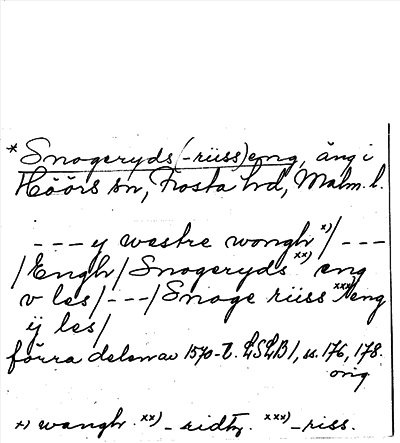 * Snogeryds(-riiss)eng, äng i
Höörs sn, Frosta hd, Malm. l.
--- y westre wongh x) / ---
/Engh/ Snogeryds xx) eng
v les/ --- /Snoge riiss xxx) eng
ÿ les/
förra delen av 1570-t. LSLB 1, ss. 176, 178.
orig
x) wangh. xx) -ridtz. xxx) -riss.